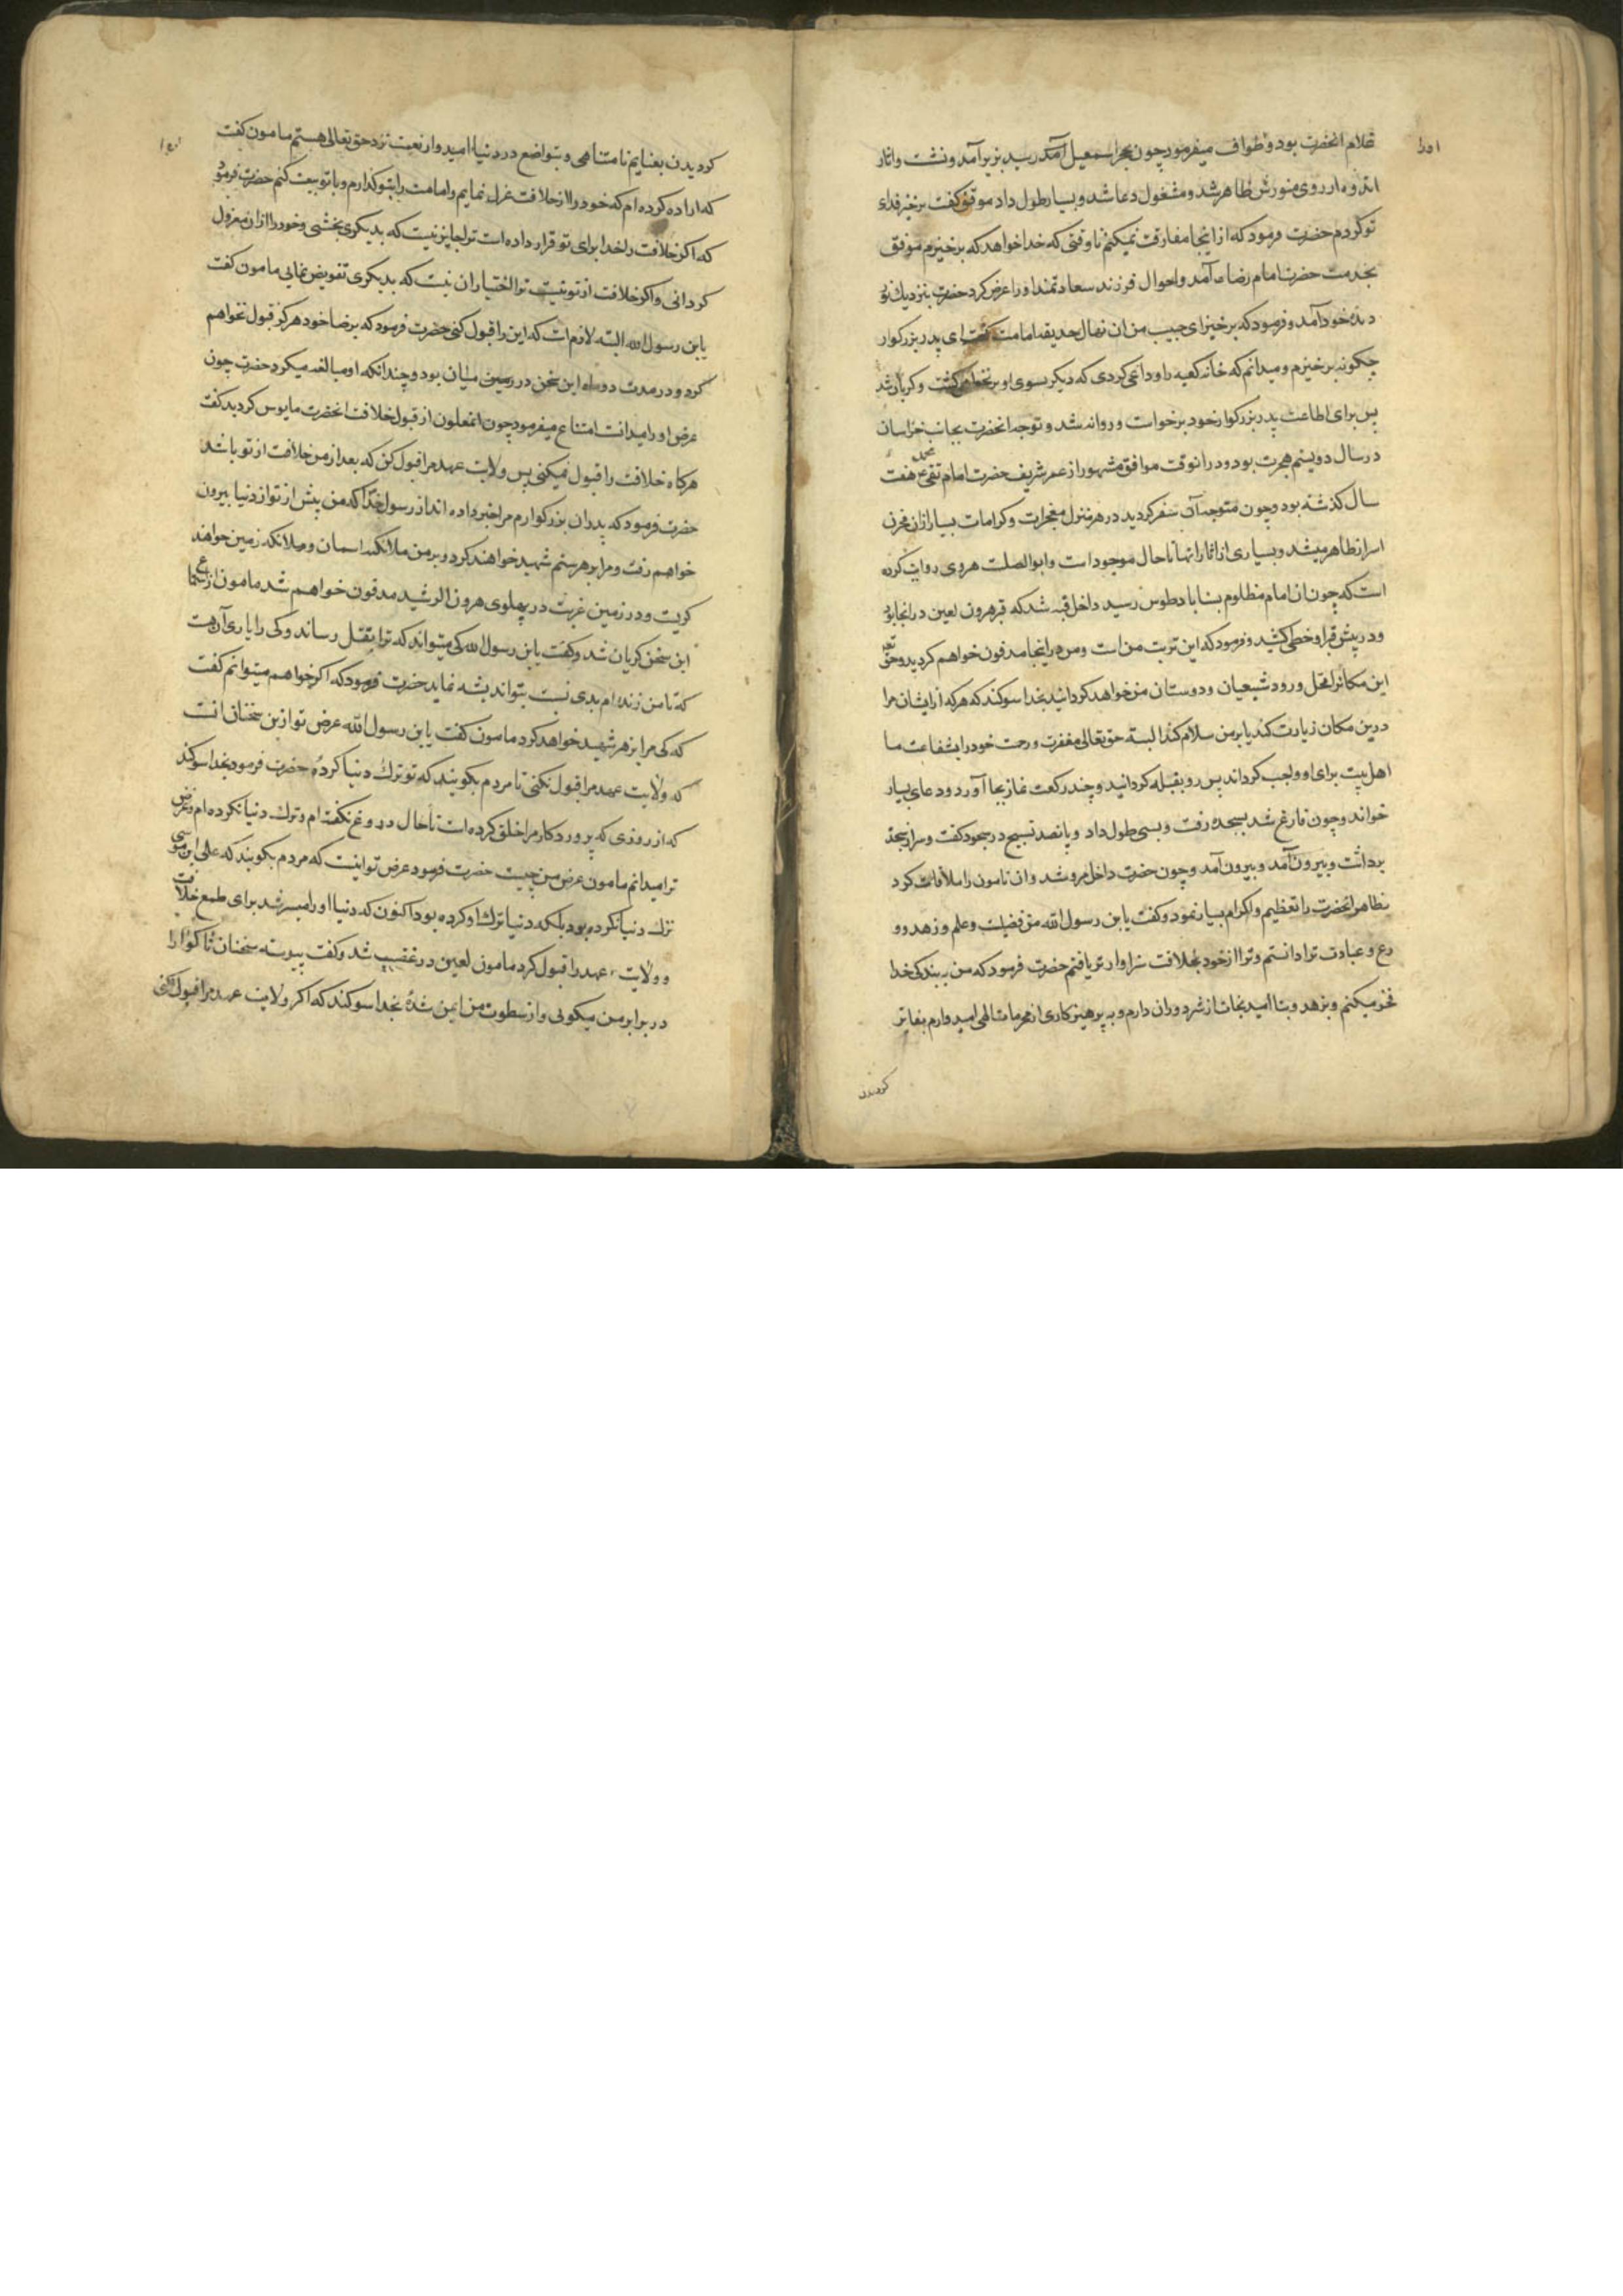 غلام انحضرت بود و طواف میفرمود چون بحجر اسمعیل آمد رسید بزیر آمد و نشست واثار
اندوه از روی منورش ظاهر شد و مشغول دعا شد و بسیار طول داد موفق کفت برخیز فدای
تو کردم حضرت فرمود که از اینجا مفارقت نمیکنم تا وقتی که خدا خواهد که برخیزم موفق
بخدمت حضرت امام رضا ع آمد و احوال فرزند سعادتمند او را عرض کرد حضرت بنزدیک نور
دیدهٔ خود آمد و فرمود که برخیز ای حبیب من ان نهال حدیقه امامت کفت ای پدر بزرکوار
چکونه برخیزم و میدانم که خانه کعبه را وداعی کردی که دیکر بسوی او برنخواهی کشت و کریان شد
پس برای اطاعت پدر بزرکوار خود برخواست و روانه شد و توجه انحضرت بجانب خراسان
در سال دویستم هجرت بود و در انوقت موافق مشهور از عمر شریف حضرت امام محمد تقی ع هفت
سال کذشته بود و چون متوجه آن سفر کردید در هر منزل معجزات و کرامات بسیار ازان مخزن
اسرار ظاهر میشد و بسیاری از اثار انها تا حال موجود است و ابوالصلت هروی روایت کرده
است که چون ان امام مظلوم بسناباد طوس رسید داخل قبه شد که قبر هرون لعین در انجا بود
و در پیش قبر او خطی کشید و فرمود که این تربت من است و من در اینجا مدفون خواهم کردید و حق تعالی
این مکانرا محل ورود شیعیان و دوستان من خواهد کردانید بخدا سوکند که هر که از ایشان مرا
درین مکان زیارت کند یا بر من سلام کند البته حق تعالی مغفرت و رحمت خود را بشفاعت ما
اهل بیت برای او واجب کرداند پس رو بقبله کردانید و چند رکعت نماز بجا آورد و دعای بسیار
خواند و چون فارغ شد بسجده رفت و بسی طول داد و پانصد تسبیح در سجود کفت و سر از سجده
برداشت و بیرون آمد و بیرون آمد و چون حضرت داخل مرو شد و ان مامون را ملاقات کرد
بظاهر انحضرت را تعظیم و اکرام بسیار نمود و کفت یابن رسول الله من فضیلت و علم و زهد و و
رع و عبادت ترا دانستم و ترا از خود بخلافت سزاوارتر یافتم حضرت فرمود که من به بندکی خدا
فخر میکنم و بزهد دنیا امید نجات از شر دوران دارم و به پرهیزکاری از محرمات الهی امیدوارم بفایز
کردیدن
کردیدن بغنایم نامتناهی و بتواضع در دنیا امیدوار نعمت نزد حق تعالی هستم مامون کفت
که اراده کرده ام که خود را از خلافت عزل نمایم و امامت را بتو کذارم و با تو بیعت کنم حضرت فرمود
که اکر خلافت را خدا برای تو قرار داده است ترا جایز نیست که بدیکری بخشی و خود را ازان معزول
کردانی و اکر خلافت از تو نیست ترا اختیار ان نیست که بدیکری تفویض نمایی مامون کفت
یابن رسول الله البته لازم است که این را قبول کنی حضرت فرمود که برضا خود هرکز قبول نخواهم
کرد و در مدت دو ماه این سخن در میان بود و چندانکه او مبالغه میکرد حضرت چون
غرض او را میدانست امتناع میفرمود چون انملعون از قبول خلافت انحضرت مایوس کردید کفت
هرکاه خلافت را قبول نمیکنی پس ولایت عهد مرا قبول کن که بعد از من خلافت از تو باشد
حضرت فرمود که پدران بزرکوارم مرا خبر داده اند از رسول خدا که من پیش از تو از دنیا بیرون
خواهم رفت و مرا بزهر ستم شهید خواهند کرد و بر من ملائکه اسمان و ملائکه زمین خواهند
کریست و در زمین غربت در پهلوی هرون الرشید مدفون خواهم شد مامون از استماع
این سخن کریان شد و کفت یابن رسول الله کی میتواند که ترا بقتل رساند و کی را یارای آن هست
که تا من زنده ام بدی نسبت بتو اندیشه نماید حضرت فرمود که اکر خواهم میتوانم کفت
که کی مرا بزهر شهید خواهد کرد مامون کفت یابن رسول الله غرض تو ازین سخنان انست
که ولایت عهد مرا قبول نکنی تا مردم بکویند که تو ترک دنیا کردهٔ حضرت فرمود بخدا سوکند
که از روزی که پروردکار مرا خلق کرده است تا حال دروغ نکفته ام و ترک دنیا نکرده ام و غرض
ترا میدانم مامون غرض من چیست حضرت فرمود غرض تو اینست که مردم بکویند که علی ابن موسی
ترک دنیا نکرده بود بلکه دنیا ترک او کرده بود اکنون که دنیا او را میسر شد برای طمع خلافت
و ولایت عهد را قبول کرد مامون لعین در غضب شد و کفت پیوسته سخنان ناکوارا
در برابر من میکوئی و از سطوت من ایمن شدهٔ بخدا سوکند که اکر ولایت عهد مرا قبول نکنی